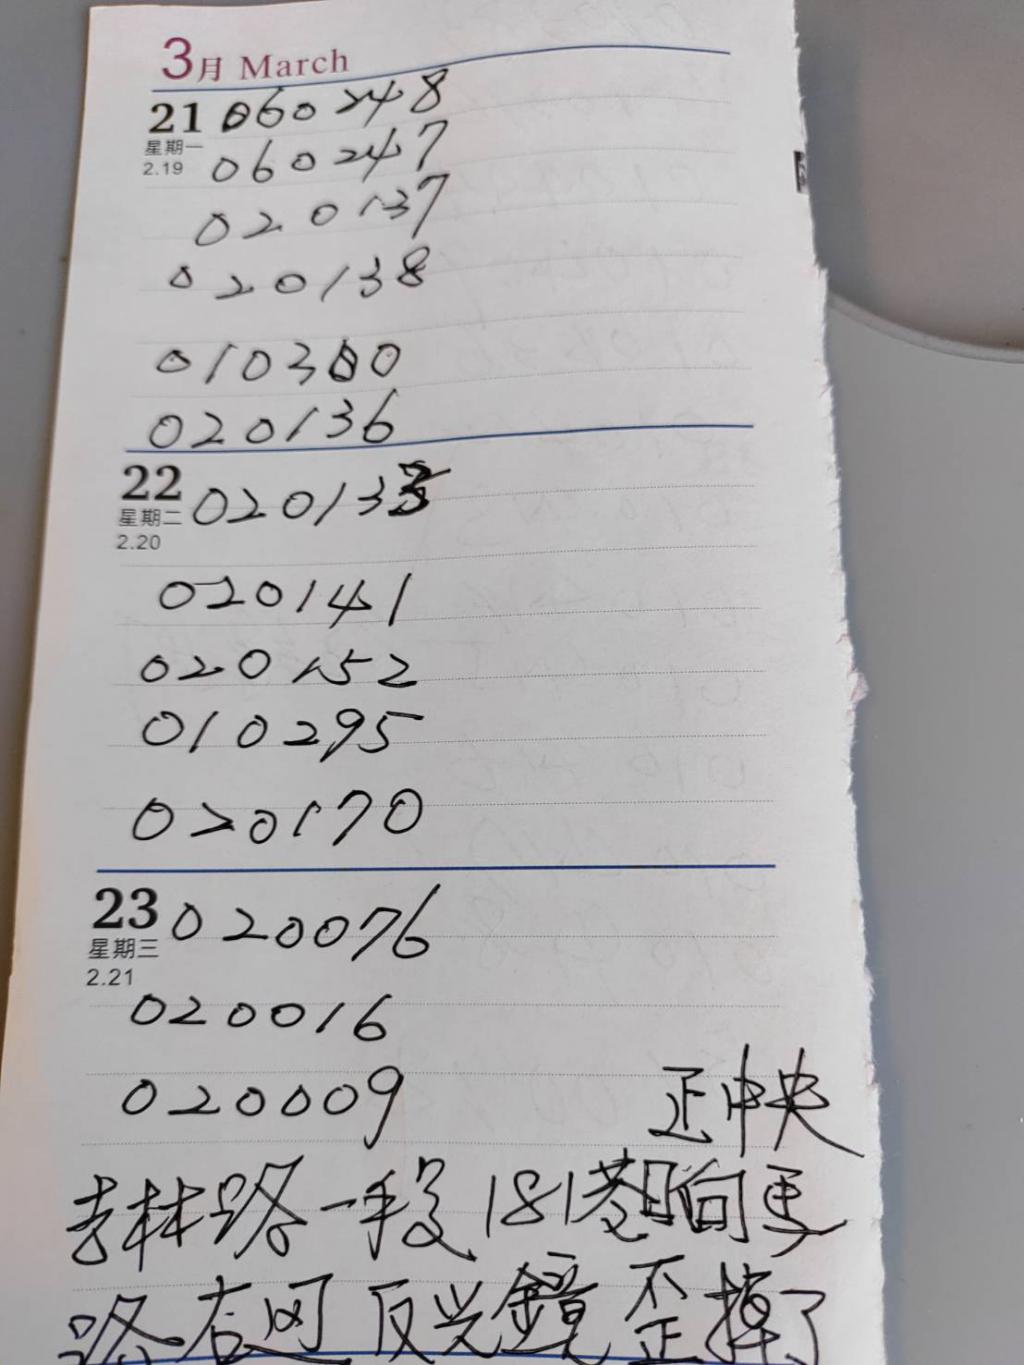 3月 March
21 060248
星期一
060247
2.19
020137
020138
010300
020136
22 020133
星期二
2.20
020141
020152
010295
020170
23 020076
星期三
2.21
020016
020009
正中央
吉林路一段181巷 向馬
路右 反光鏡歪掉了